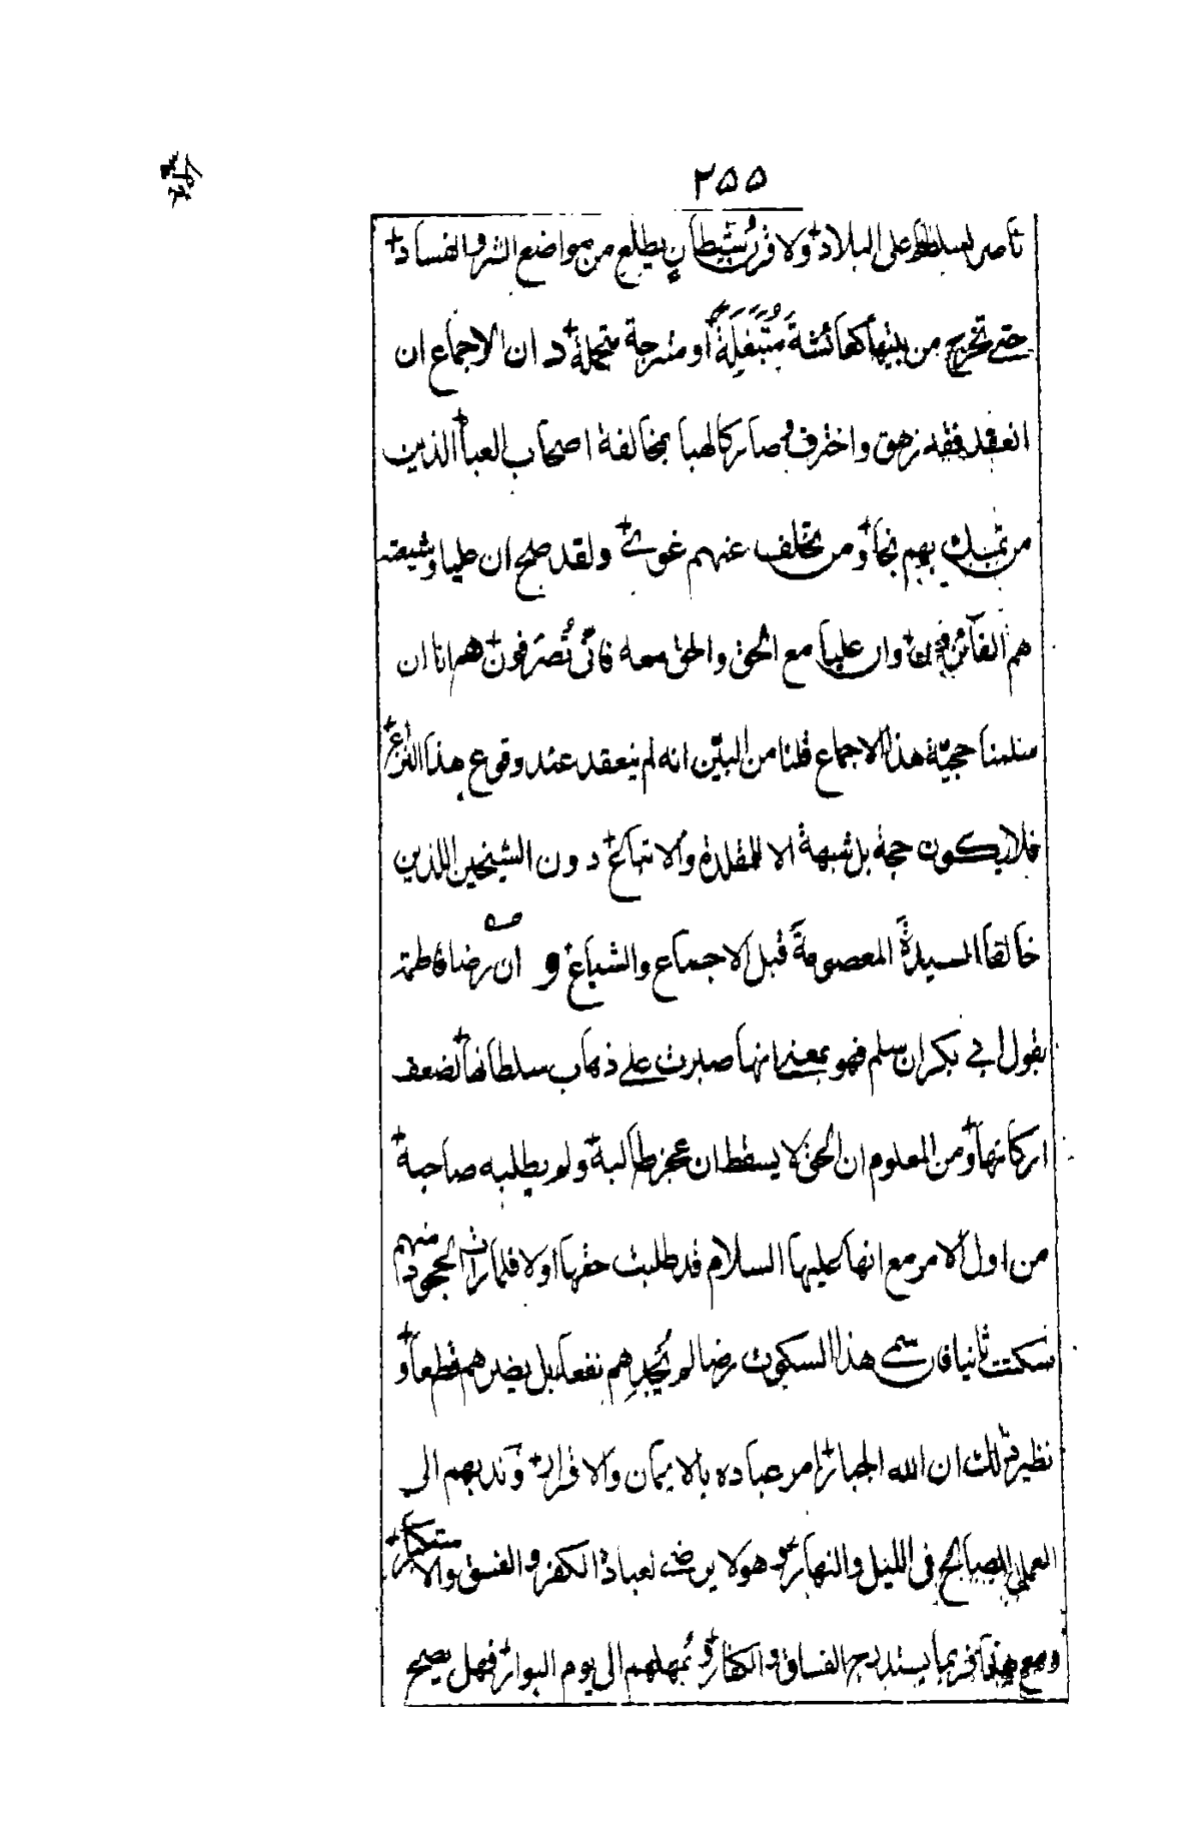 ٢٥٥
ناصر لسلطانها على البلاد ولا قرن شيطان يطلع من مواضع الشر والفساد
حتى تخرج من بيتها كعائشة متبغلة أو متجملة د ان الاجماع ان
انعقد فقد زهق واخترق وصار كالهبا بمخالفة اصحاب العبا الذين
من تمسك بهم نجا ومن تخلف عنهم غوى ولقد صح ان عليا وشيعته
هم الفائزون وان عليا مع الحق والحق معه فانى تُصرَفون هم انا ان
سلمنا حجيّة هذا الاجماع قلنا من البيّن انه لم ينعقد عند وقوع هذا النزاع
فلا يكون حجة بل شبهة الا للمقلدة والاتباع دون الشيخين اللذين
خالفا السيدةَ المعصومةَ قبل الاجماع والشياع وه ان رضا فاطمة
بقول ابي بكر ان سلم فهو بمعنى انها صبرت على ذهاب سلطانها لضعف
اركانها ومن المعلوم ان الحق لا يسقط ان عجز طالبه ولم يطلبه صاحبه
من اول الامر مع انها عليها السلام قد طلبت حقها اولا فلما رات الجحود منهم
سكتت ثانيا فان سمي هذا السكوت رضا لم يُجدِهم نفعا بل يضرهم قطعا و
نظير ذلك ان الله الجبار امر عباده بالايمان والاقرار وندبهم الى
العمل الصالح في الليل والنهار وهو لا يرضى لعباده الكفر والفسق والاستكبار
ومع هذا فربما يستدرج الفساق والكفار ويُمهلهم الى يوم البوار فهل يصح